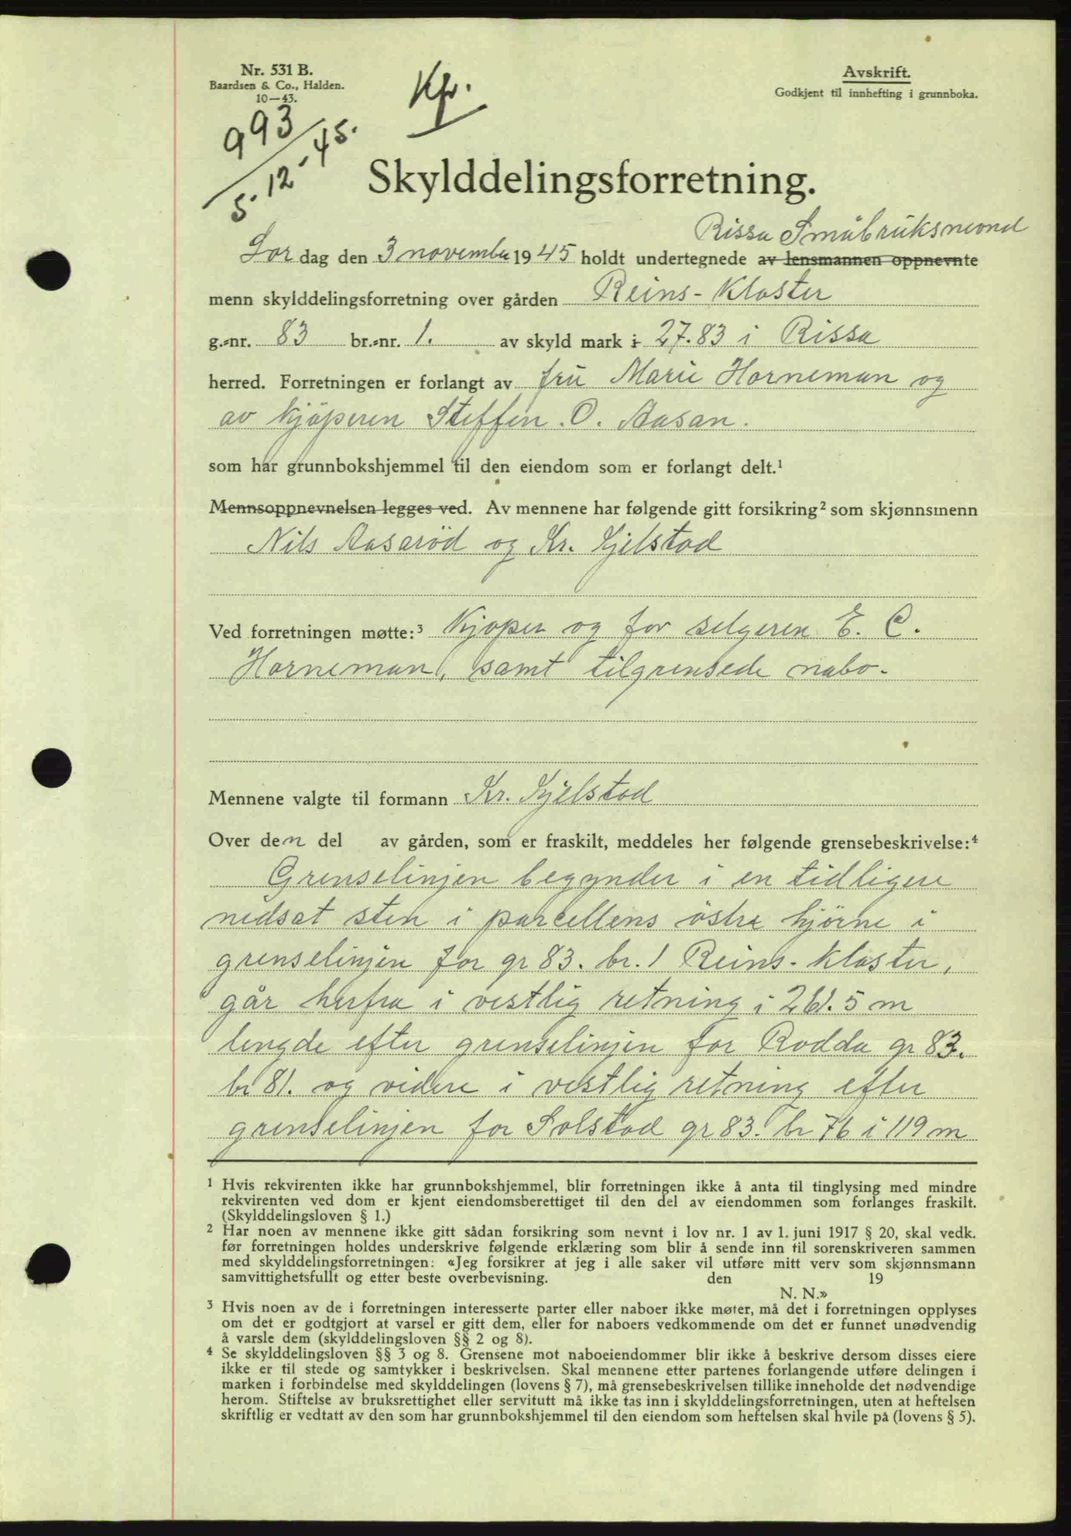 Nr. 531 B.
Baardsen & Co., Halden.
10—43.
Kfr.
Avskrift.
Godkjent til innhefting i grunnboka.
993
5-12-45.
Skylddelingsforretning.
Rissa Småbruksnemnd
Lør dag den 3 november 1945 holdt undertegnede av lensmannen oppnevnte
menn skylddelingsforretning over gården Reins-Kloster
g.-nr. 83 br.-nr. 1. av skyld mark i 27.83 i Rissa
herred. Forretningen er forlangt av fru Marie Horneman og
av kjöperen Steffen. O. Aasan.
som har grunnbokshjemmel til den eiendom som er forlangt delt.¹
Mennsoppnevnelsen legges ved. Av mennene har følgende gitt forsikring² som skjønnsmenn
Nils Aaseröd og Kr. Kjelstad
Ved forretningen møtte:³ Kjøper og for selgeren E. C.
Horneman, samt tilgrensede nabo.
Mennene valgte til formann Kr. Kjelstad
Over den del av gården, som er fraskilt, meddeles her følgende grensebeskrivelse:⁴
Grenselinjen begynder i en tidligere
nedsat sten i parcellens östre hjörne i
grenselinjen for gr 83. br. 1 Reins-Kloster,
går herfra i vestlig retning i 261.5 m
lengde efter grenselinjen for Rodda gr 83.
br 81. og videre i vestlig retning efter
grenselinjen for Solstad gr 83. br 76 i 119 m
¹ Hvis rekvirenten ikke har grunnbokshjemmel, blir forretningen ikke å anta til tinglysing med mindre
rekvirenten ved dom er kjent eiendomsberettiget til den del av eiendommen som forlanges fraskilt.
(Skylddelingsloven § 1.)
² Har noen av mennene ikke gitt sådan forsikring som nevnt i lov nr. 1 av 1. juni 1917 § 20, skal vedk.
før forretningen holdes underskrive følgende erklæring som blir å sende inn til sorenskriveren sammen
med skylddelingsforretningen: «Jeg forsikrer at jeg i alle saker vil utføre mitt verv som skjønnsmann
samvittighetsfullt og etter beste overbevisning. den 19
N. N.»
³ Hvis noen av de i forretningen interesserte parter eller naboer ikke møter, må det i forretningen opplyses
om det er godtgjort at varsel er gitt dem, eller for naboers vedkommende om det er funnet unødvendig
å varsle dem (skylddelingsloven §§ 2 og 8).
⁴ Se skylddelingsloven §§ 3 og 8. Grensene mot naboeiendommer blir ikke å beskrive dersom disses eiere
ikke er til stede og samtykker i beskrivelsen. Skal mennene etter partenes forlangende utføre delingen i
marken i forbindelse med skylddelingen (lovens § 7), må grensebeskrivelsen tillike inneholde det nødvendige
herom. Stiftelse av bruksrettighet eller servitutt må ikke tas inn i skylddelingsforretningen, uten at heftelsen
skriftlig er vedtatt av den som har grunnbokshjemmel til den eiendom som heftelsen skal hvile på (lovens § 5).